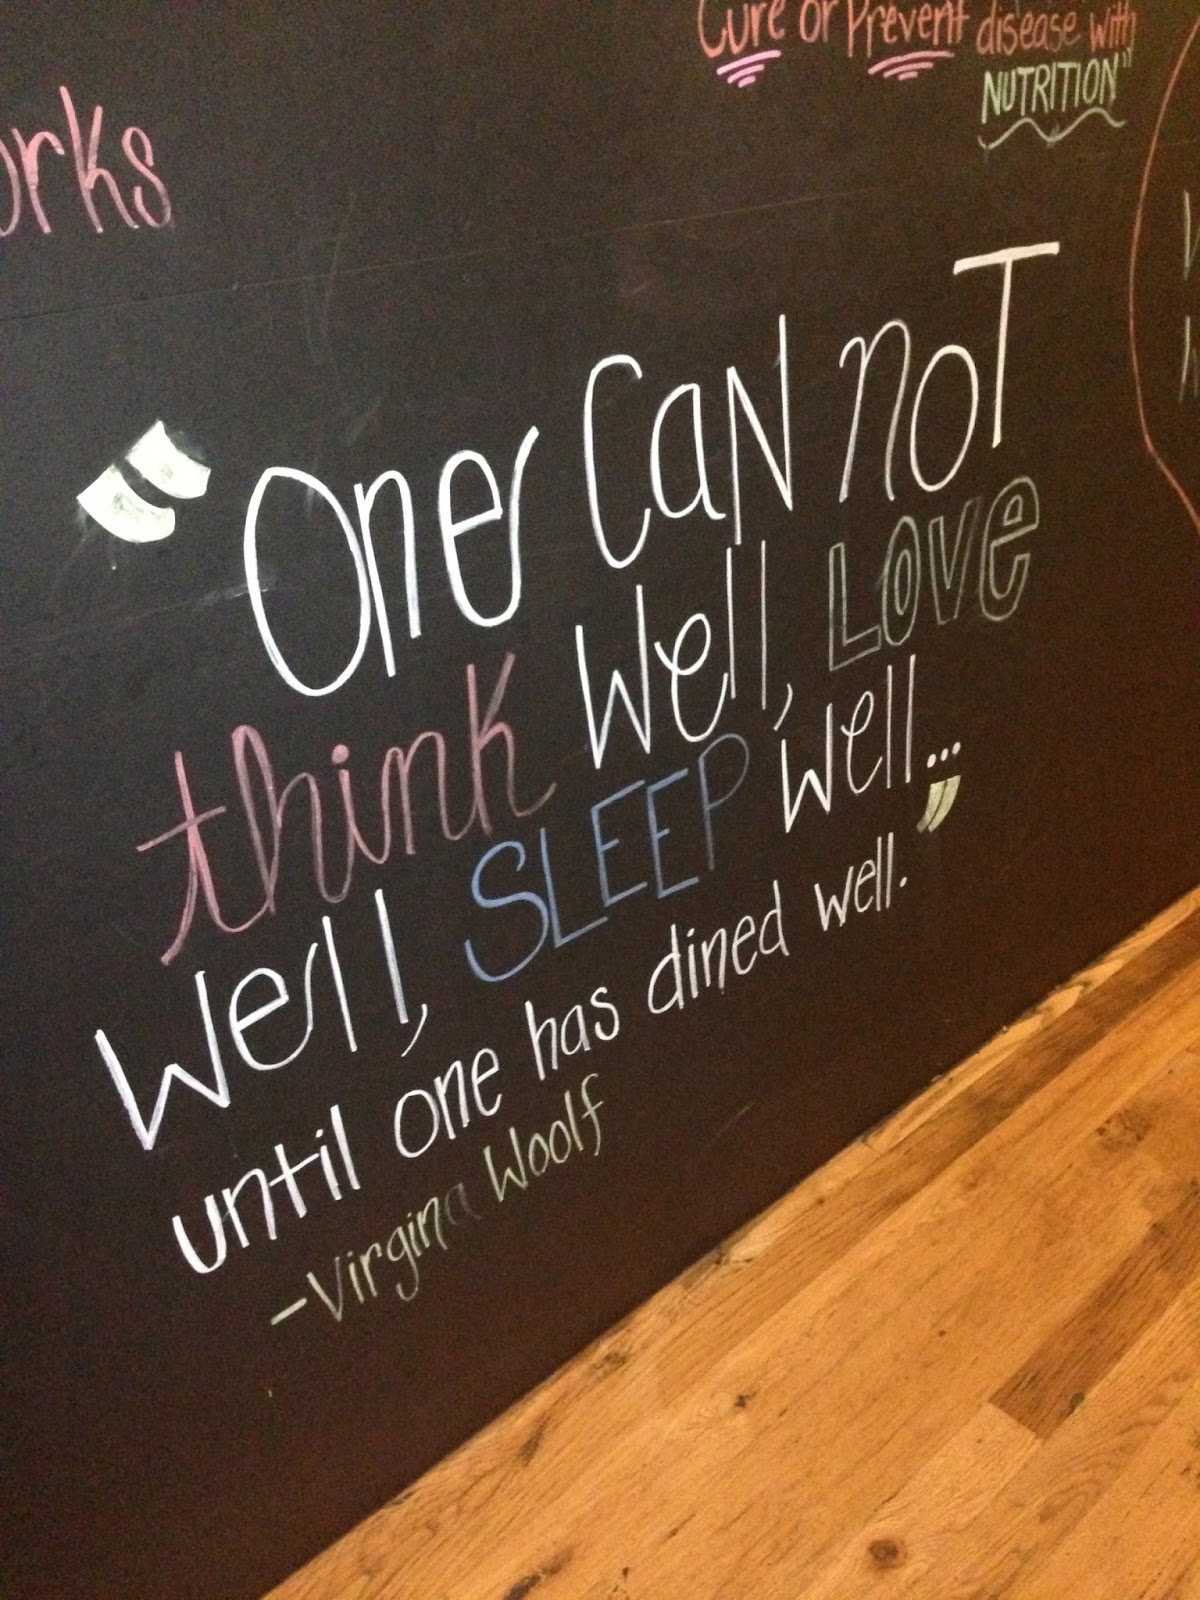 Cure or Prevent disease with
NUTRITION"
orks
"One Can noT
think well, Love
well, SLEEP well..."
until one has dined well.
-Virgina Woolf